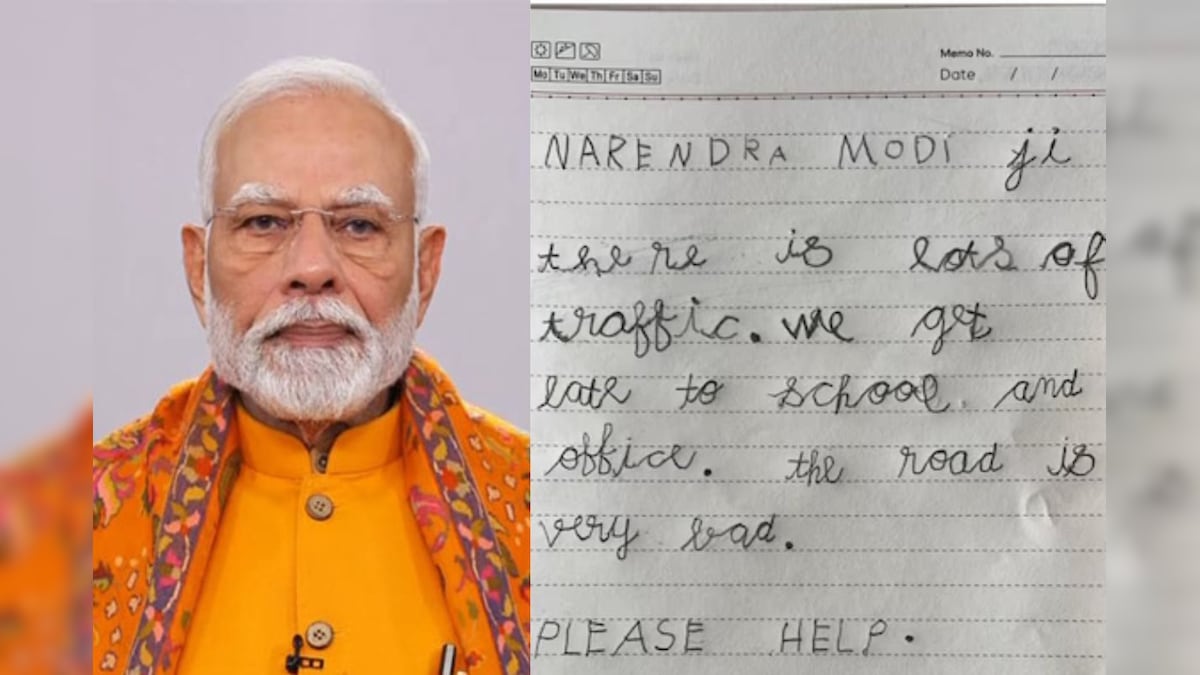 Memo No.
Mo Tu We Th Fr Sa Su
Date / /
NARENDRA MODI ji
there is lots of
traffic. we get
late to school and
office. the road is
very bad.
PLEASE HELP.